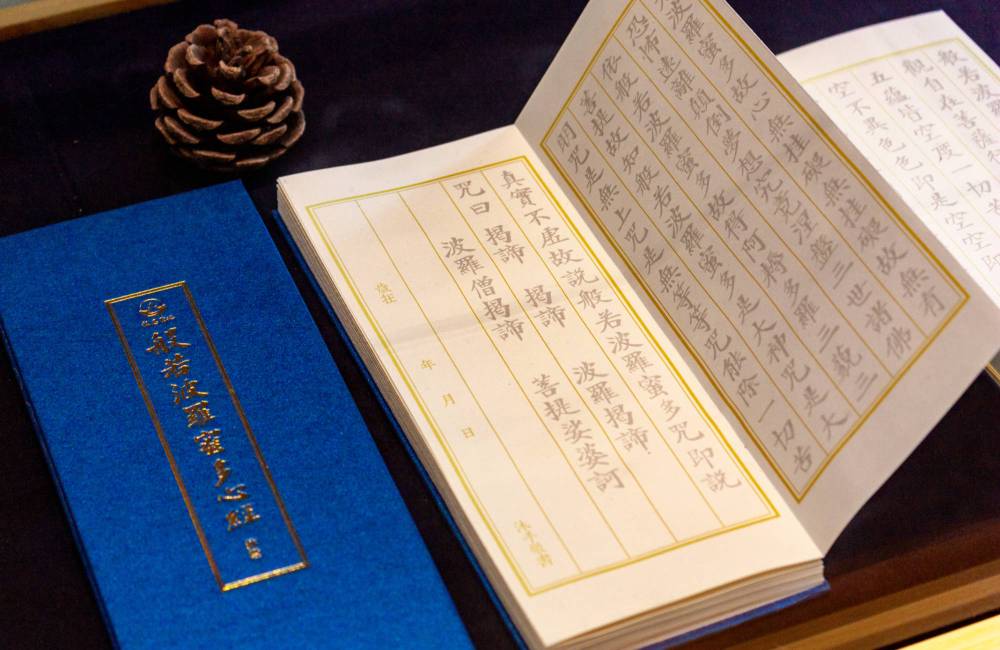 般若波羅蜜多心經
般若波
觀自在菩薩行
五蘊皆空度一切苦
空不異色色即是空空即
波羅蜜多故心無挂礙無挂礙故無有
恐怖遠離顛倒夢想究竟涅槃三世諸佛
依般若波羅蜜多故得阿耨多羅三藐三
菩提故知般若波羅蜜多是大神咒是大
明咒是無上咒是無等等咒能除一切苦
真實不虛故說般若波羅蜜多咒即說
咒曰 揭諦 揭諦 波羅揭諦
波羅僧揭諦 菩提娑婆訶
歲在 年 月 日
沐手敬書